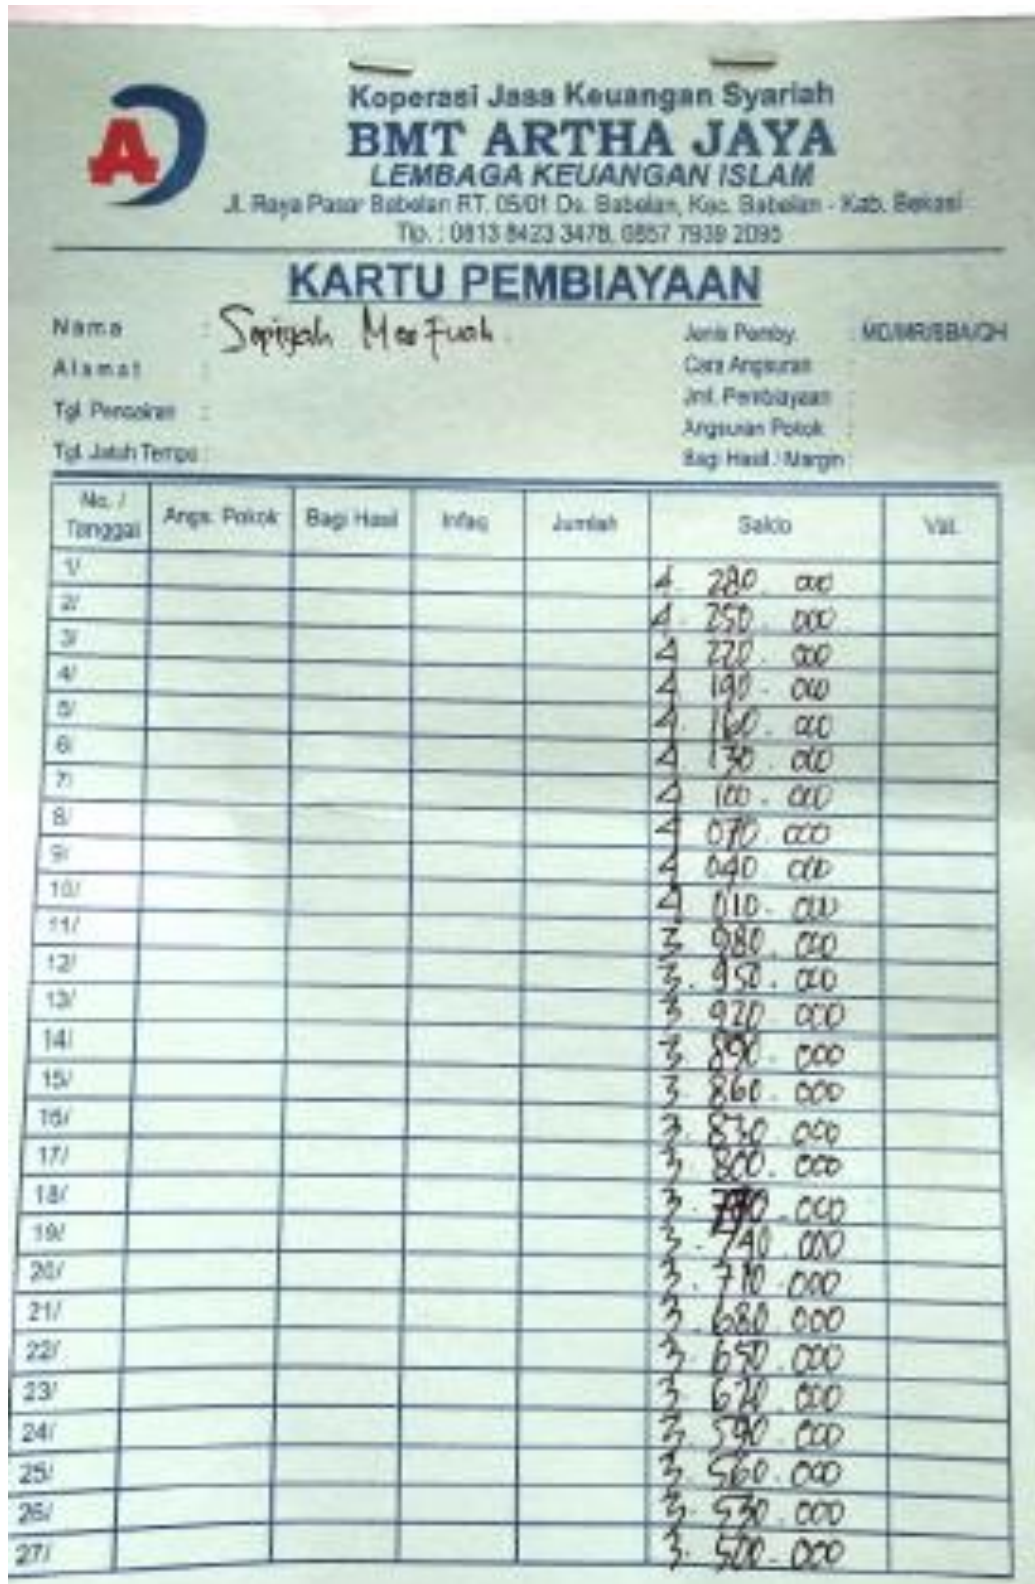 A
Koperasi Jasa Keuangan Syariah
BMT ARTHA JAYA
LEMBAGA KEUANGAN ISLAM
Jl. Raya Pasar Babelan RT. 05/01 Ds. Babelan, Kec. Babelan - Kab. Bekasi
Tlp. : 0813 8423 3478, 0857 7939 2095
KARTU PEMBIAYAAN
Nama :
Jenis Pemby. : MD/MR/BBA/QH
Alamat :
Cara Angsuran :
Jml. Pembiayaan :
Tgl. Pencairan :
Angsuran Pokok :
Tgl. Jatuh Tempo :
Bagi Hasil / Margin :
No. / Tanggal Angs. Pokok Bagi Hasil Infaq Jumlah Saldo Val.
1/ 4. 280. 000
2/ 4. 250. 000
3/ 4 220. 000
4/ 4 190. 000
5/ 4. 160. 000
6/ 4 130. 000
7/ 4 100. 000
8/ 4 070. 000
9/ 4 040 000
10/ 4 010. 000
11/ 3 980. 000
12/ 3. 950. 000
13/ 3 920 000
14/ 3 890. 000
15/ 3. 860. 000
16/ 3. 830. 000
17/ 3. 800. 000
18/ 3. 770. 000
19/ 3. 740. 000
20/ 3. 710. 000
21/ 3. 680. 000
22/ 3. 650. 000
23/ 3. 620. 000
24/ 3. 590. 000
25/ 3. 560. 000
26/ 3. 530. 000
27/ 3. 500. 000